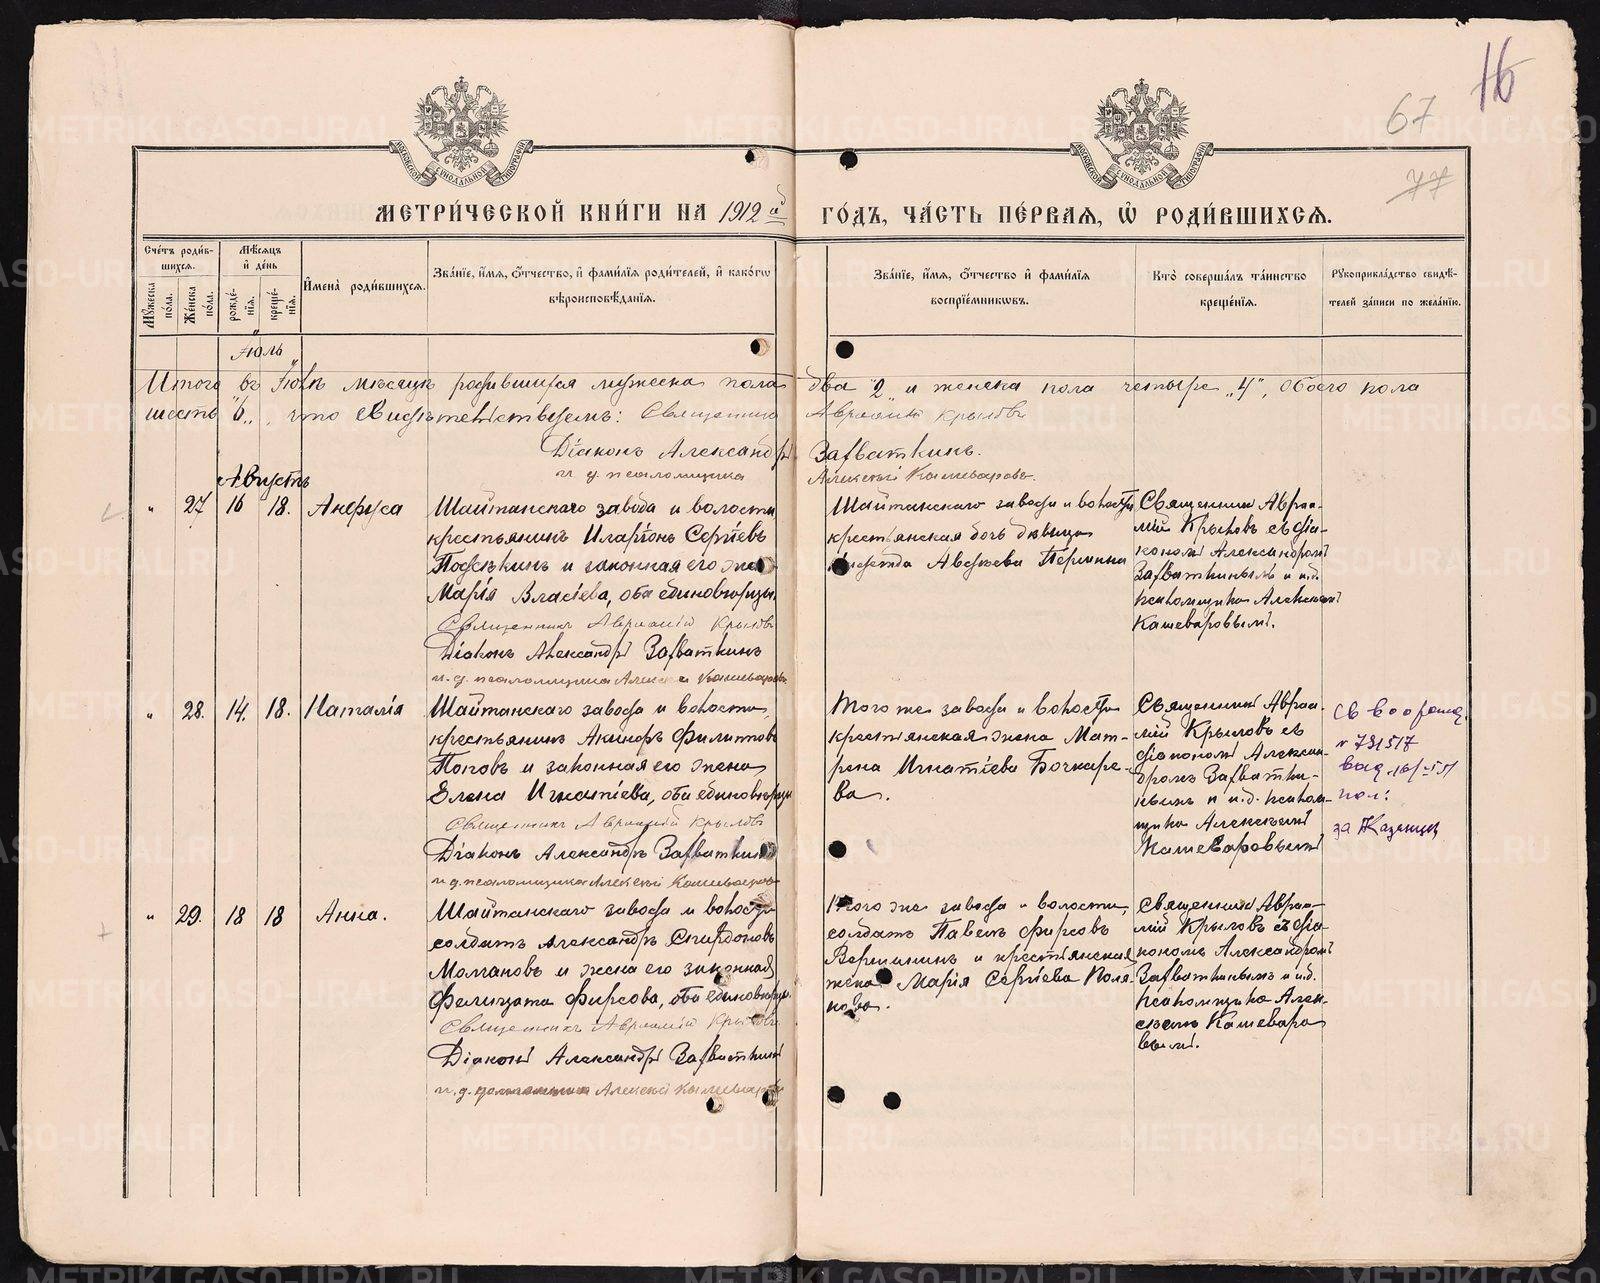 16
67
77
МЕТРИ́ЧЕСКОЙ КНИ́ГИ НА 1912 й
ГО́ДЪ, ЧА́СТЬ ПЕ́РВАЯ, Ѽ РОДИ́ВШИХСЯ.
Сче́тъ роди́вшихся.
Му́жеска по́ла.
Же́нска по́ла.
Мѣ́сяцъ и҆ де́нь
рожде́нїя.
креще́нїя.
И҆мена̀ роди́вшихся.
Зва́нїе, и҆́мя, ѻ҆́тчество, и҆ фами́лїя роди́телей, и҆ како́гѡ
вѣроисповѣ́данїя.
Зва́нїе, и҆́мя, ѻ҆́тчество и҆ фами́лїя
воспрїе́мникѡвъ.
Кто̀ соверша́лъ та́инство
креще́нїя.
Рꙋкоприкла́дство свидѣ́-
телей за́писи по жела́нїю.
Іюль
Итого въ Іюлѣ мѣсяцѣ родившихся мужеска пола
два „2„ и женска пола четыре „4", обоего пола
шесть „6„, что свидѣтельствуемъ: Священникъ
Авраамій Крыловъ
Діаконъ Александръ
Задваткинъ.
и. д. псаломщика
Алексѣй Кашеваровъ.
Августъ
" 27 16 18. Анфуса
Шайтанскаго завода и волости
крестьянинъ Иларіонъ Сергіевъ
и законная его жена
Марія Власіева, оба единовѣрцы.
Священникъ Авраамій Крыловъ
Діаконъ Александръ Задваткинъ
и. д. псаломщика Алексѣй Кашеваровъ
Шайтанскаго завода и волости
крестьянская дочь дѣвица
Авдѣева Пермина
Священникъ Авраа-
мій Крыловъ съ діа-
кономъ Александромъ
Задваткинымъ и и.д.
псаломщика Алексѣемъ
Кашеваровымъ.
" 28. 14. 18. Наталія
Шайтанскаго завода и волости,
крестьянинъ Акинфъ Филипповъ
Поповъ и законная его жена
Елена Игнатіева, оба единовѣрцы
Священникъ Авраамій Крыловъ
Діаконъ Александръ Задваткинъ
и. д. псаломщика Алексѣй Кашеваровъ
Того же завода и волости
крестьянская жена Мат-
рена Игнатіева Бочкаре-
ва.
Священникъ Авраа-
мій Крыловъ съ
діакономъ Алексан-
дромъ Задватки-
нымъ и и.д. псалом-
щика Алексѣемъ
Кашеваровымъ
св во о рожд.
№ 731517
16/-
пол:
за
" 29. 18 18 Анна.
Шайтанскаго завода и волости
солдатъ Александръ Спиридоновъ
Молчановъ и жена его законная
Фелицата Фирсова, оба единовѣрцы.
Священникъ Авраамій Крыловъ
Діаконъ Александръ Задваткинъ
и. д. псаломщика Алексѣй Кашеваровъ
Того же завода и волости,
солдатъ Павелъ Фирсовъ
Вершининъ и крестьянская
жена Марія Сергіева Поля-
кова.
Священникъ Авраа-
мій Крыловъ съ діа-
кономъ Александромъ
Задваткинымъ и и.д.
псаломщика Алек-
сѣемъ Кашеваро-
вымъ.